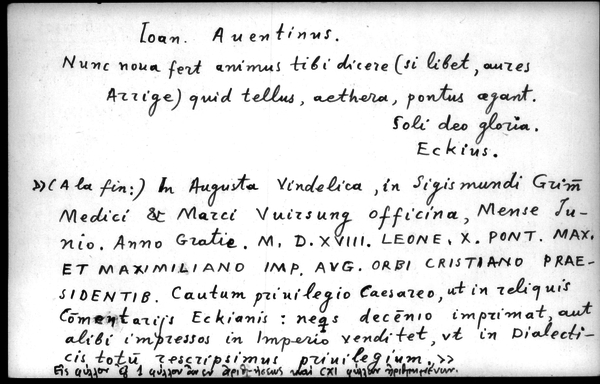 Ioan. Auentinus.
Nunc noua fert animus tibi dicere (si libet, aures
Arrige) quid tellus, aethera, pontus ægant.
Soli deo gloria.
Eckius.
»(A la fin:) In Augusta Vindelica, in Sigismundi Grim̄
Medici & Marci Vuirsung officina, Mense Iu-
nio. Anno Gratie. M. D. XVIII. LEONE. X. PONT. MAX.
ET MAXIMILIANO IMP. AVG. ORBI CRISTIANO PRAE-
SIDENTIB. Cautum priuilegio Caesareo, ut in reliquis
Cōmentarijs Eckianis: neqs decēnio imprimat, aut
alibi impressos in Imperio venditet, vt in Dialecti-
cis totū rescripsimus priuilegium.»
Εἰς φύλλον 1 φύλλον ἄνευ ἀριθμήσεως καὶ CXI φύλλα ἠριθμημένων.